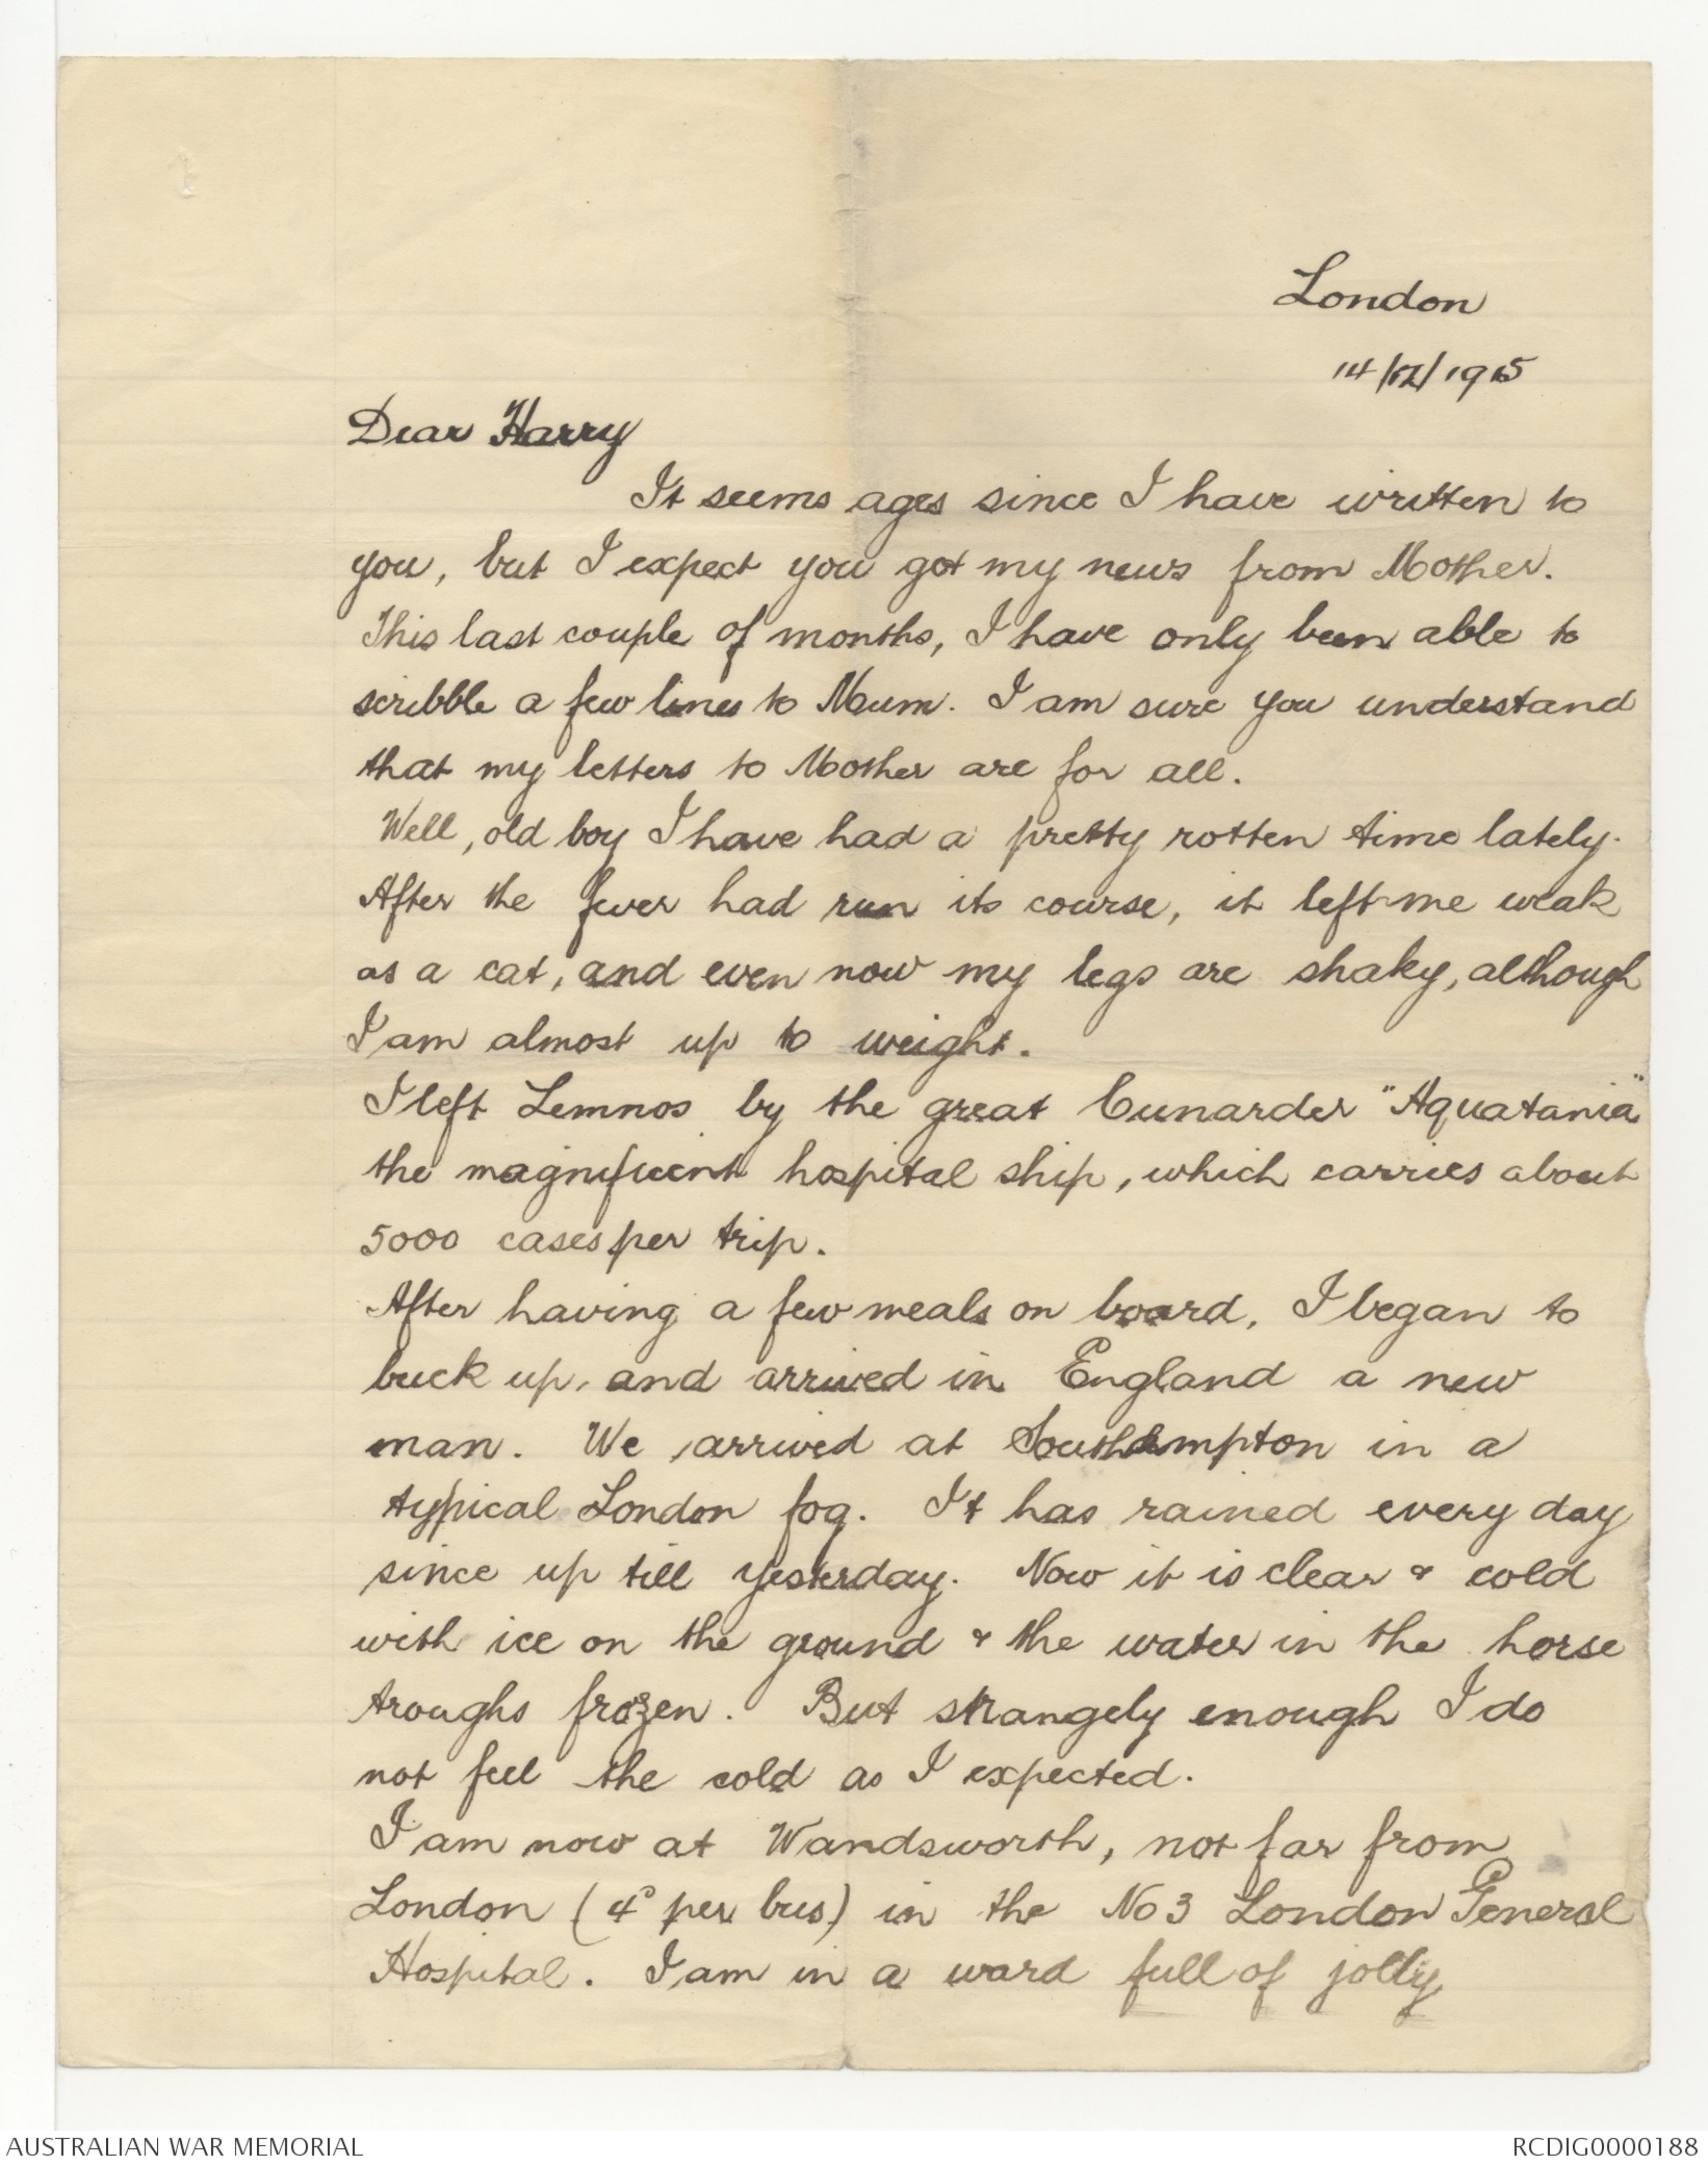 London
14/12/1915
Dear Harry
It seems ages since I have written to
you, but I expect you got my news from Mother.
This last couple of months, I have only been able to
scribble a few lines to Mum. I am sure you understand
that my letters to Mother are for all.
Well, old boy I have had a pretty rotten time lately.
After the fever had run its course, it left me weak
as a cat, and even now my legs are shaky, although
I am almost up to weight.
I left Lemnos by the great Cunarder "Aquatania"
the magnificent hospital ship, which carries about
5000 cases per trip.
After having a few meals on board, I began to
buck up, and arrived in England a new
man. We arrived at Southampton in a
typical London fog. It has rained every day
since up till yesterday. Now it is clear & cold
with ice on the ground & the water in the horse
troughs frozen. But strangely enough I do
not feel the cold as I expected.
I am now at Wandsworth, not far from
London (4ᴰ per bus) in the No 3 London General
Hospital. I am in a ward full of jolly
AUSTRALIAN WAR MEMORIAL
RCDIG0000188